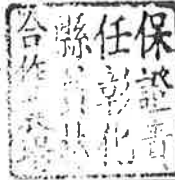 保證責
任彰化
縣
合作農場